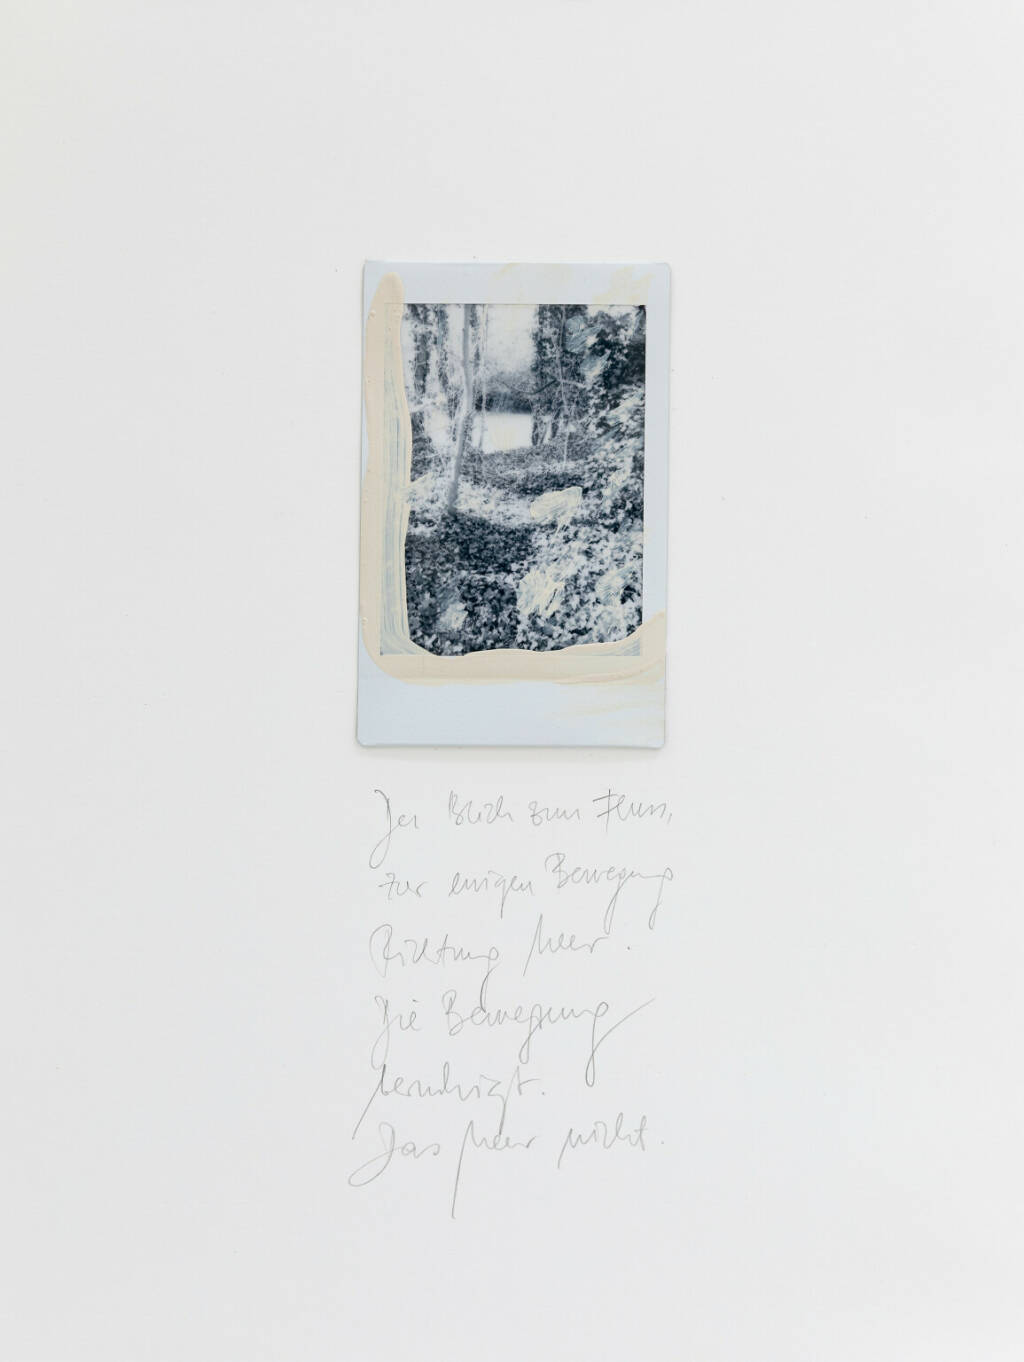 Der Blick zum Fluss,
zur ewigen Bewegung
Richtung Meer.
Die Bewegung
beruhigt.
Das Meer nicht.